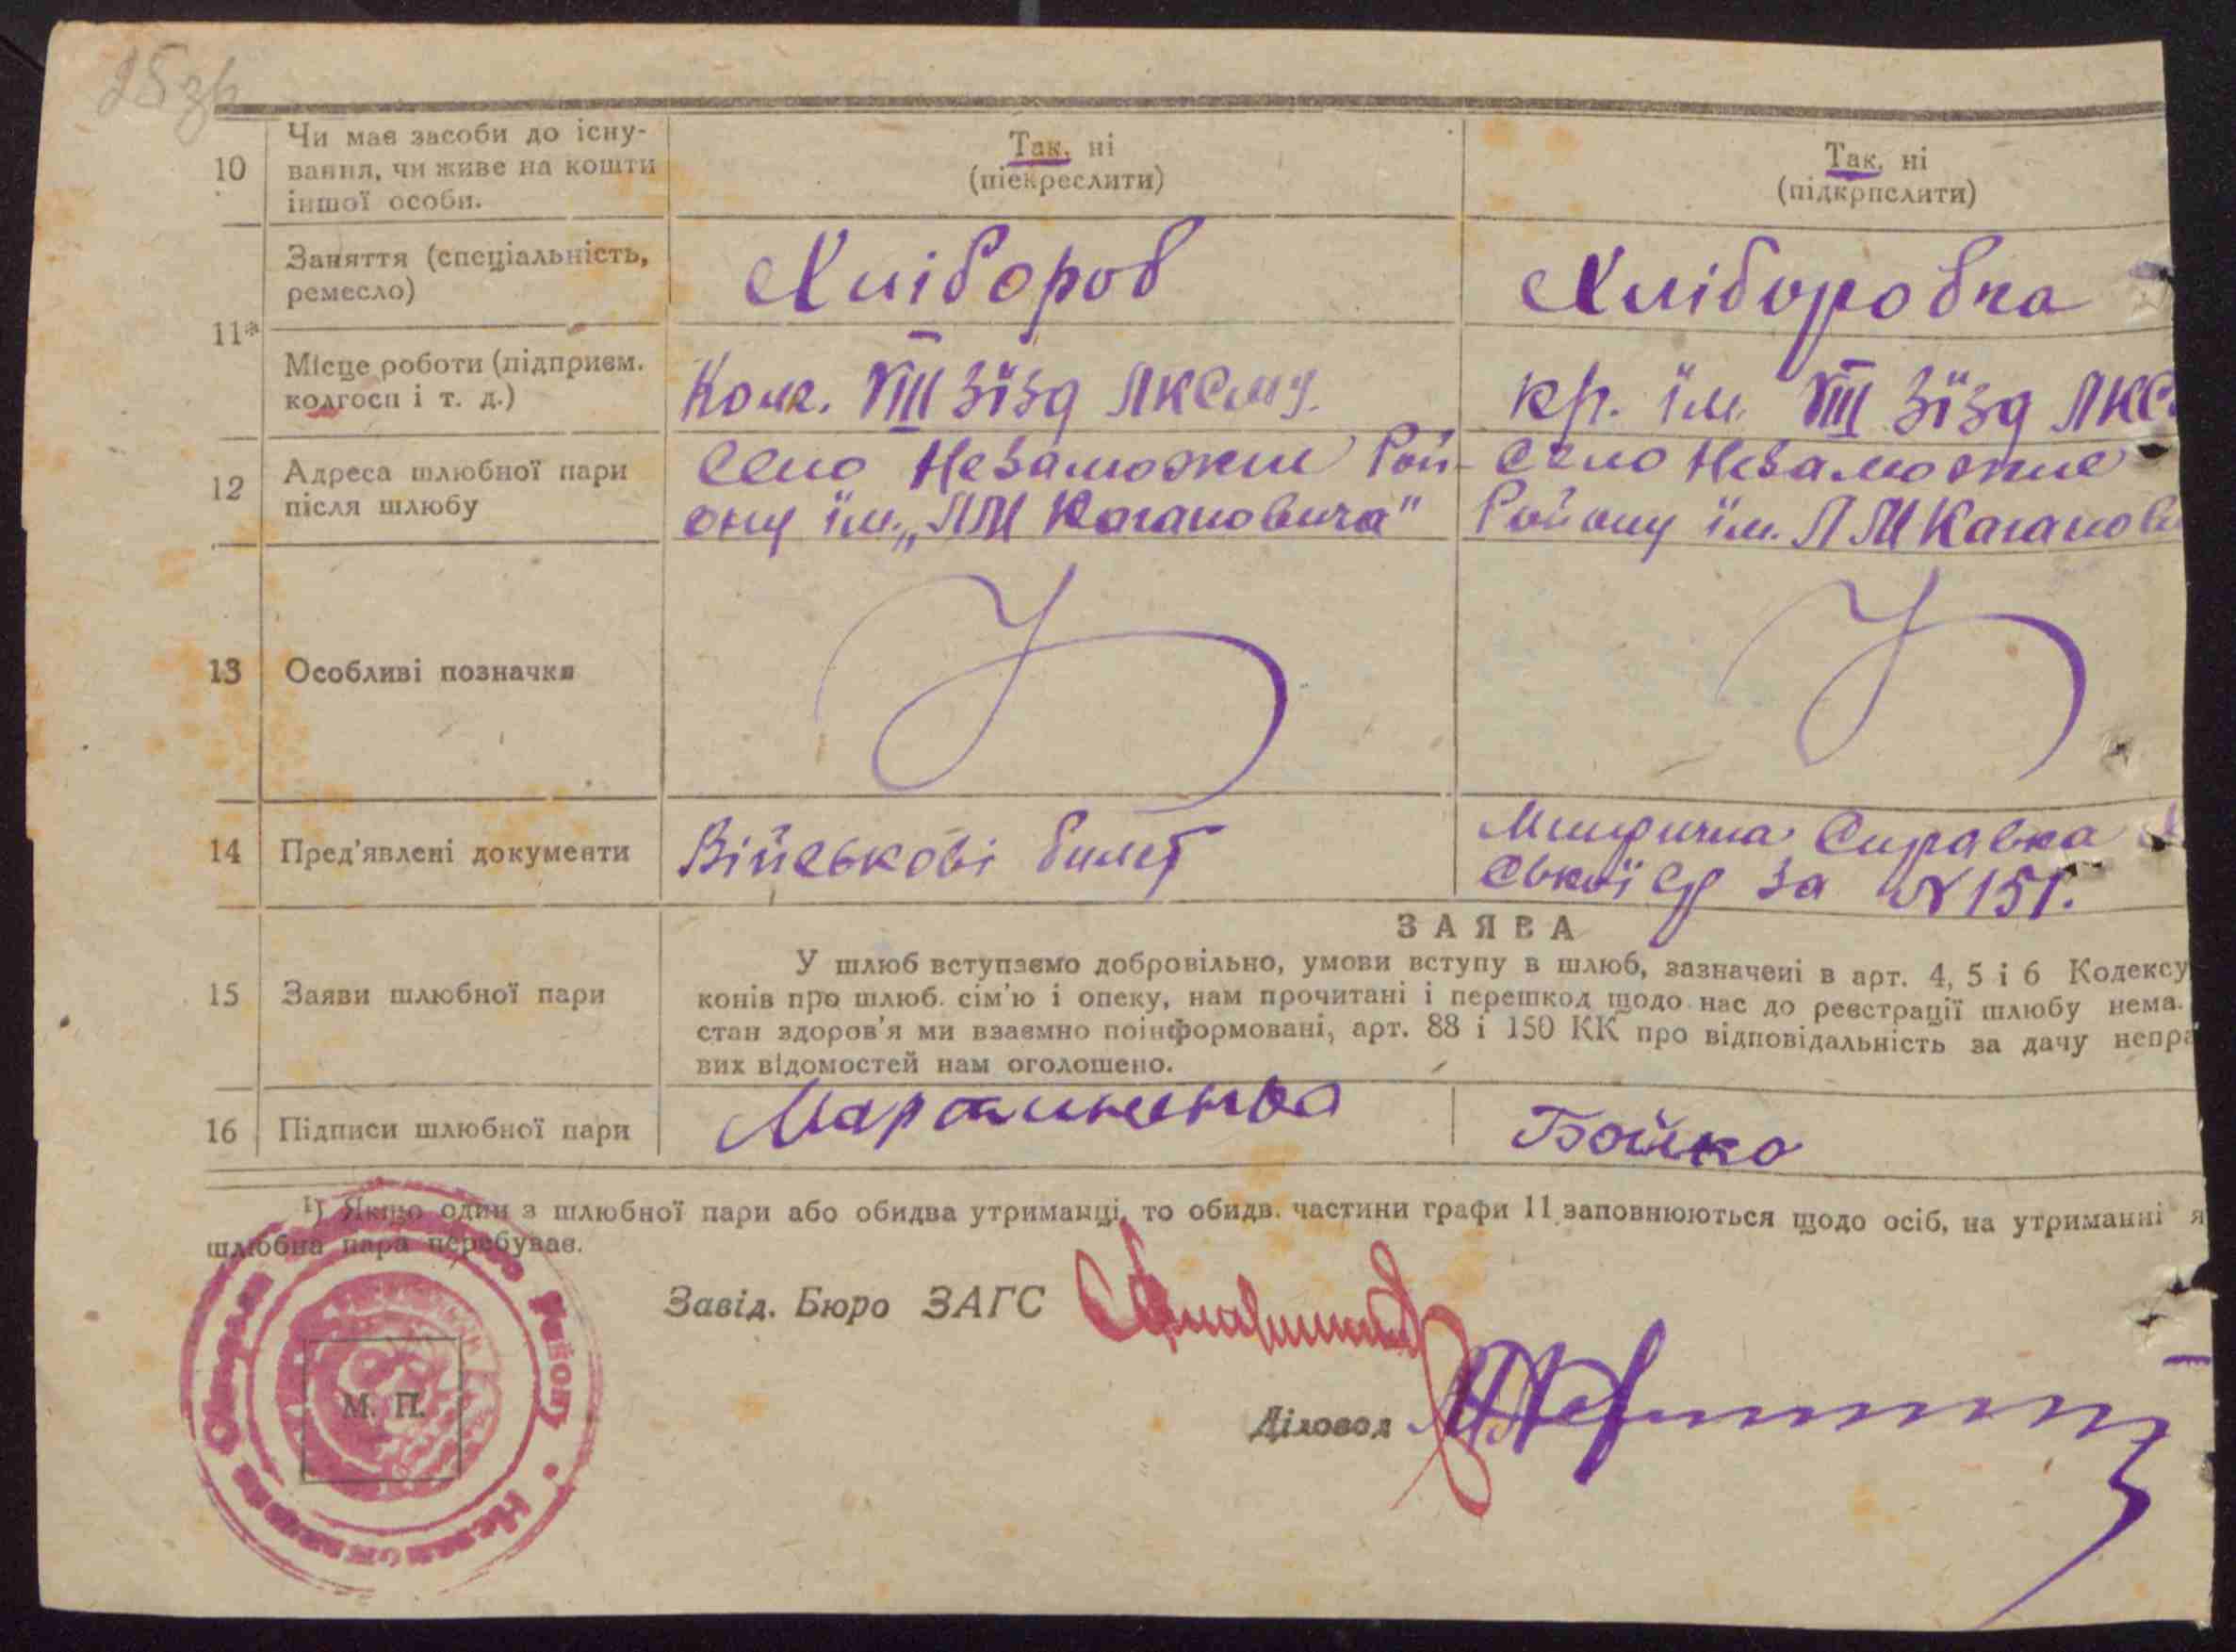 25 зв
10
Чи має засоби до існу-
вання, чи живе на кошти
іншої особи.
Так, ні
(піекреслити)
Так, ні
(підкрпслити)
11*
Заняття (спеціальність,
ремесло)
Хліборов
Хліборовка
Місце роботи (підприєм.
колгосп і т. д.)
Кολг. VIII Зїзд ЛКСму.
кр. їм. VIII Зїзд ЛКС
12
Адреса шлюбної пари
після шлюбу
Село Незаможне Рай-
ону їм. „ЛМ Кагановича"
Село Незаможне
Району їм. ЛМ Каганови
13
Особливі позначки
14
Пред'явлені документи
Військові билет
Справка
ської ср за №151.
15
Заяви шлюбної пари
ЗАЯВА
У шлюб вступаємо добровільно, умови вступу в шлюб, зазначені в арт. 4, 5 і 6 Кодексу
конів про шлюб. сім'ю і опеку, нам прочитані і перешкод щодо нас до реєстрації шлюбу нема.
стан здоров'я ми взаємно поінформовані, арт. 88 і 150 КК про відповідальність за дачу непра
вих відомостей нам оголошено.
16
Підписи шлюбної пари
Мартиненко
Бойко
¹) Якщо один з шлюбної пари або обидва утриманці, то обидв. частини графи 11 заповнюються щодо осіб, на утриманні я
шлюбна пара перебуває.
Завід. Бюро ЗАГС
Діловод
М. П.